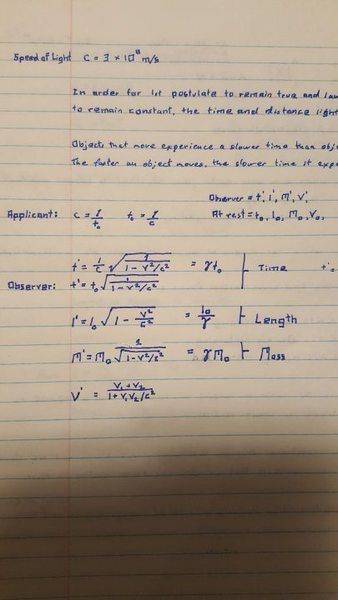 Speed of Light C = 3 × 10⁸ m/s
In order for 1st postulate to remain true and law
to remain constant, the time and distance light
Objects that move experience a slower time than obj
The faster an object moves, the slower time it expe
Observer = t', l', m', v'
At rest = t₀, l₀, m₀, v₀,
Applicant: C = l/t₀ t₀ = l/c
t' = l/c √(1/(1 - v²/c²)) = γt₀ ├ Time t'₀
Observer: t' = t₀ √(1/(1 - v²/c²))
l' = l₀ √(1 - v²/c²) = l₀/γ ├ Length
m' = m₀ √(1/(1 - v²/c²)) = γm₀ ├ Mass
v' = (v₁ + v₂)/(1 + v₁v₂/c²)